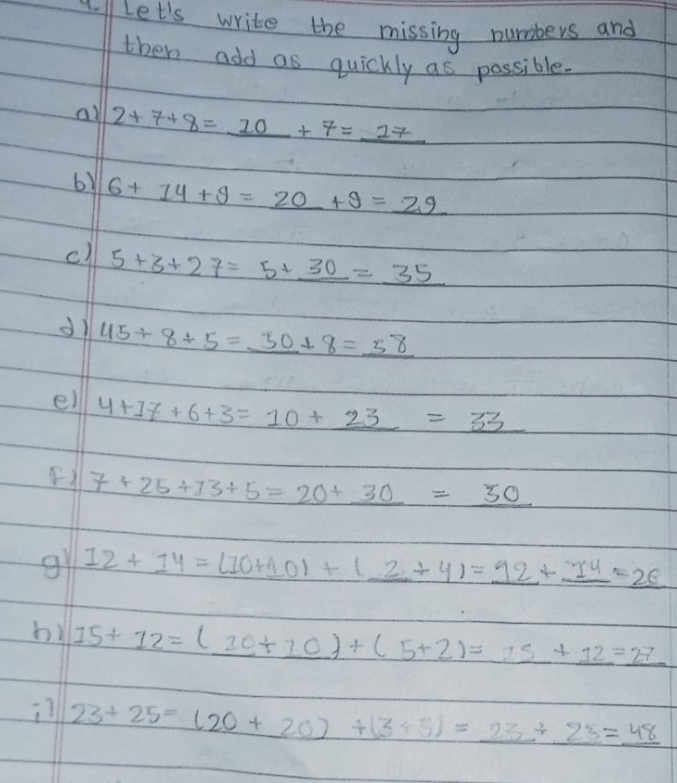 Let's write the missing numbers and
then add as quickly as possible.
a) 2+7+8= 10 + 7= 17
b) 6+ 14 +9 = 20 +9 = 29
c) 5+3+27= 5+ 30 = 35
d) 45+8+5= 50+8= 58
e) 4+17+6+3= 10+ 23 = 33
f) 7+25+13+5= 20+ 30 = 50
g) 12+14=(10+10)+( 2 +4)= 12 + 14 =26
h) 15+12=( 10+10 )+( 5+2)= 15 + 12 =27
i) 23+25= (20 + 20) +(3+5) = 23 + 25 = 48